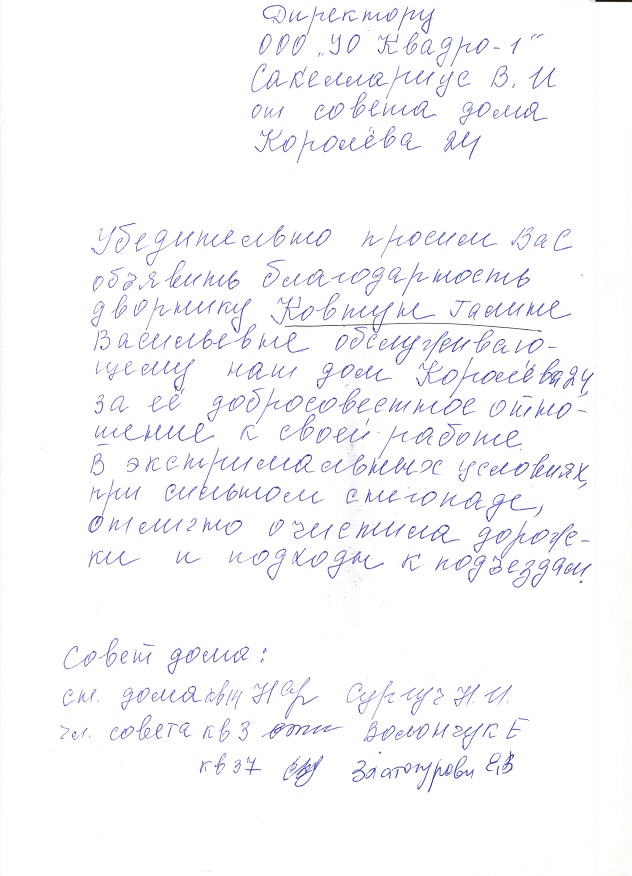 Директору
ООО „УО Квадро-1"
Сакеллариус В. И
от совета дома
Королёва 24
Убедительно просим Вас
объявить благодарность
дворнику Ковтун Галине
Васильевне обслуживаю-
щему наш дом Королёва 24,
за её добросовестное отно-
шение к своей работе.
В экстримальных условиях,
при сильном снегопаде,
отлично очистила дорож-
ки и подходы к подъездам.
Совет дома:
ст. дома Сургуч Н. И.
чл. совета кв 3 Волончук Е
кв 37